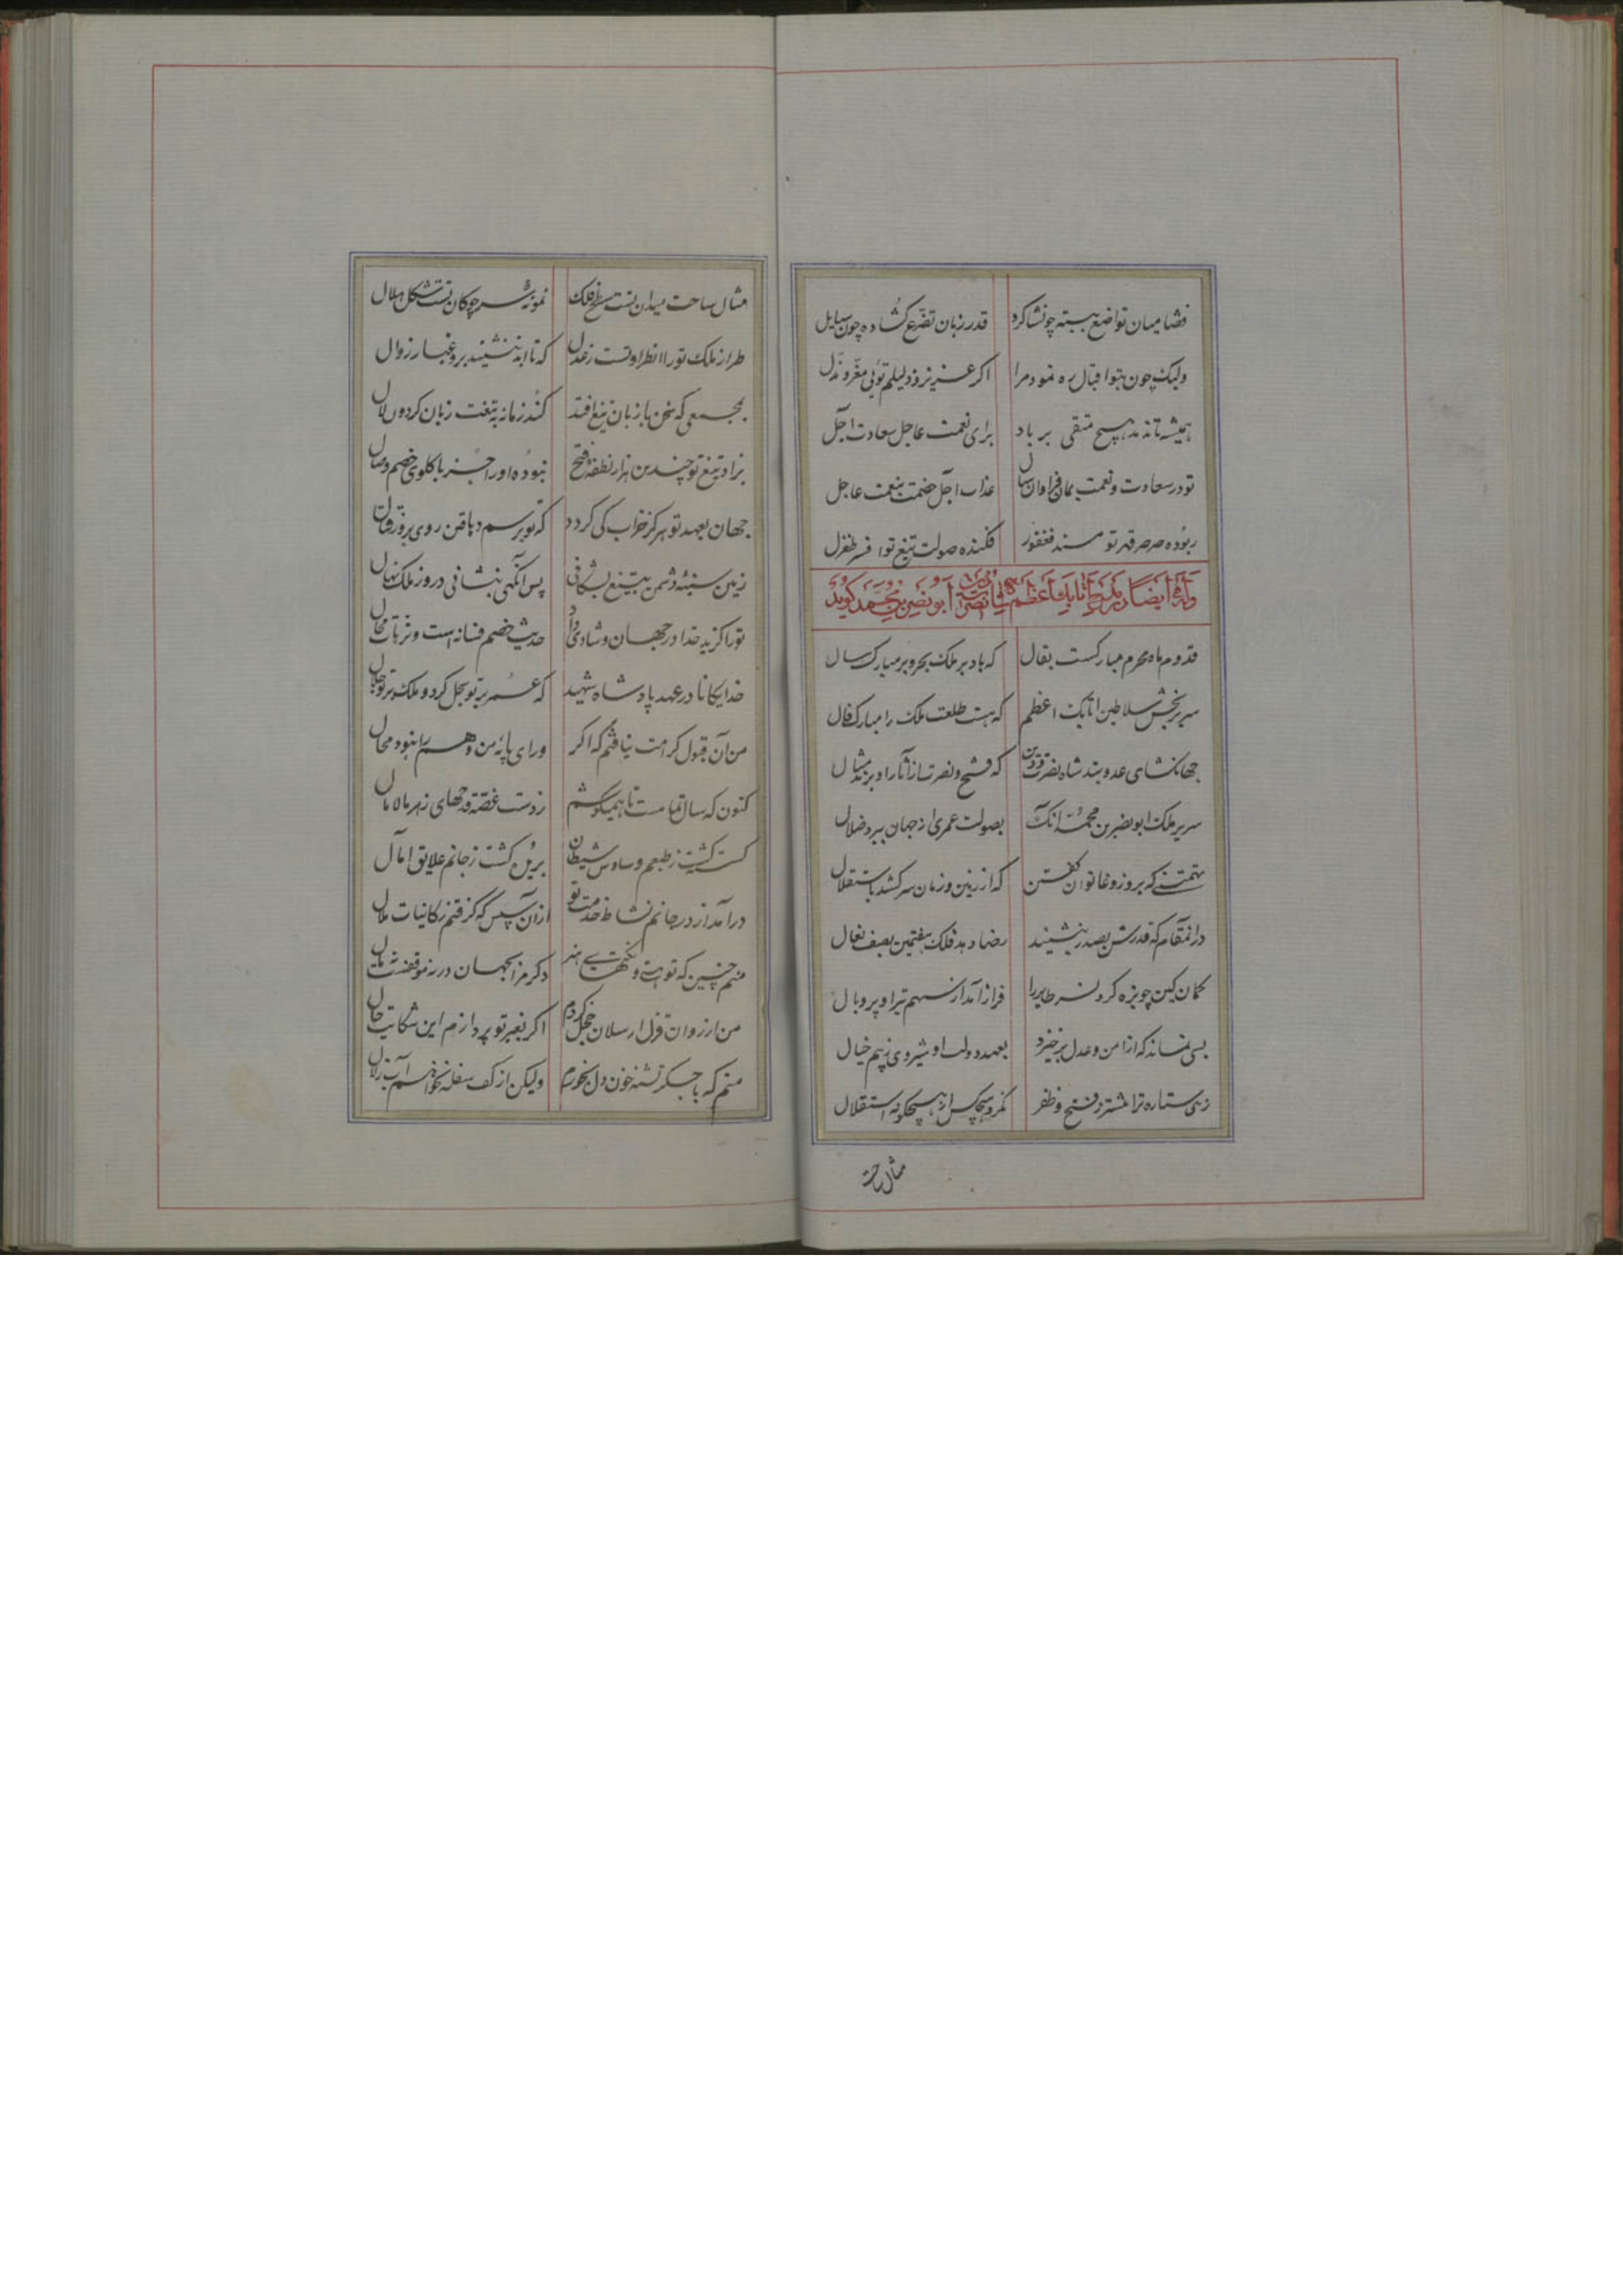 قضا میان تواضع ببسته چونشاکرد قدر زبان تضرع کشاده چون سایل
ولیک چون بتو اقبال ره نمود مرا اکر عزیزم و ذلیلم توئی معز و مذل
همیشه تا ندهد هیچ متقی بر باد برای نعمت عاجل سعادت آجل
تو در سعادت و نعمت بمان فراوان سال عذاب آجل خصمت بنعمت عاجل
ربوده صرصر قهر تو مسند فغفور فکنده صولت تیغ تو افسر طغرل
وله ایضا در مدح اتابک اعظم ابو نصر بن محمد کوید
قدوم ماه محرم مبارکست بفال که باد بر ملک بحر و بر مبارک سال
سریر بخش سلاطین اتابک اعظم که هست طلعت او ملک را مبارک فال
جهانکشای عدو بند شاه نصرت دین که فتح و نصرت از آثار او برند مثال
سریر ملک ابو نصر بن محمد آنک بصولت عمری از جهان ببرد ضلال
تهمتنی که بروز وغا توان کفتن که از زمین و زمان سر کشد باستقلال
در آنمقام که قدرش بصدر بنشیند رضا دهد فلک هفتمین بصف نعال
کمان کین چو بزه کرد نسر طایر را فراز آمد از سهم تیر او پر و بال
بسی نماند که از امن و عدل برخیزد بعهد دولت او شیروی ز بیم خیال
زهی ستاره ترا مشتری فتح و ظفر نکرد هیچکس از هیچکونه استقلال
مثال ساحت
مثال ساحت میدان تست سطح فلک نمونهٔ سر چوکان تست شکل هلال
طراز ملک تو را آنطراوتست ز عدل که تا ابد ننشیند برو غبار زوال
بمجمعی که سخن با زبان تیغ افتد کند زمانه بتیغت زبان کردون لال
بزاد تیغ تو چندین هزار نطفهٔ فتح نبوده او را جز با کلوی خصم وصال
جهان بعهد تو هرکز خراب کی کردد که تو برسم دهاقین روی برفق
زمین سینهٔ دشمن بتیغ بشکافی پس آنکهی بنشانی درو ز ملک نهال
تو را کزید خدا در جهان و شادی داد حدیث خصم فسانه است و ترهات محال
خدایکانا در عهد پادشاه شهید که عمر بر تو بحل کرد و ملک بر تو حلال
من آن قبول کرامت نیافتم که اکر ورای پایهٔ من وهم را نبود مجال
کنون که سال تمامست تا همیکوشم ز دست غصه قدحهای زهر مالامال
کسسته کشت ز طبعم وساوس شیطان بریده کشت ز جانم علایق آمال
درآمد از در جانم نشاط خدمت تو از آن سپس که کرفتم ز کاینات ملال
منم چنین که تو هستی و نکهتی ز هنر دکر مرا بجهان در نه موقفست
من ار روان قزل ارسلان خجل کردم اکر بغیر تو پردازم این شکایت حال
منم که با جکر تشنه خون دل بخورم ولیکن از کف سفله نخواهم آب زلال